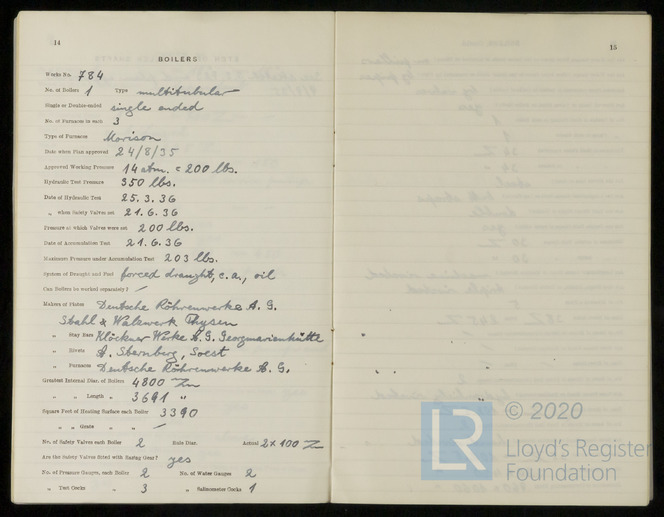 14
BOILERS
Works No. 784
No. of Boilers 1 Type multitubular
Single or Double-ended single ended
No. of Furnaces in each 3
Type of Furnaces Morison
Date when Plan approved 24/8/35
Approved Working Pressure 14 atm. = 200 lbs.
Hydraulic Test Pressure 350 lbs.
Date of Hydraulic Test 25.3.36
„ when Safety Valves set 21.6.36
Pressure at which Valves were set 200 lbs.
Date of Accumulation Test 21.6.36
Maximum Pressure under Accumulation Test 203 lbs.
System of Draught and Fuel forced draught, c.a., oil
Can Boilers be worked separately? –
Makers of Plates Deutsche Röhrenwerke A.G.
Stahl & Walzwerk Thysen
„ Stay Bars Klöckner Werke A.G. Georgmarienhütte
„ Rivets A. Sternberg, Soest
„ Furnaces Deutsche Röhrenwerke A.G.
Greatest Internal Diam. of Boilers 4800
„ „ Length „ 3691 „
Square Feet of Heating Surface each Boiler 3390
„ „ Grate „ „ –
No. of Safety Valves each Boiler 2 Rule Diam. Actual 2 x 100
Are the Safety Valves fitted with Easing Gear? yes
No. of Pressure Gauges, each Boiler 2 No. of Water Gauges 2
„ Test Cocks „ 3 „ Salinometer Cocks 1
15
LR
© 2020
Lloyd's Register
Foundation